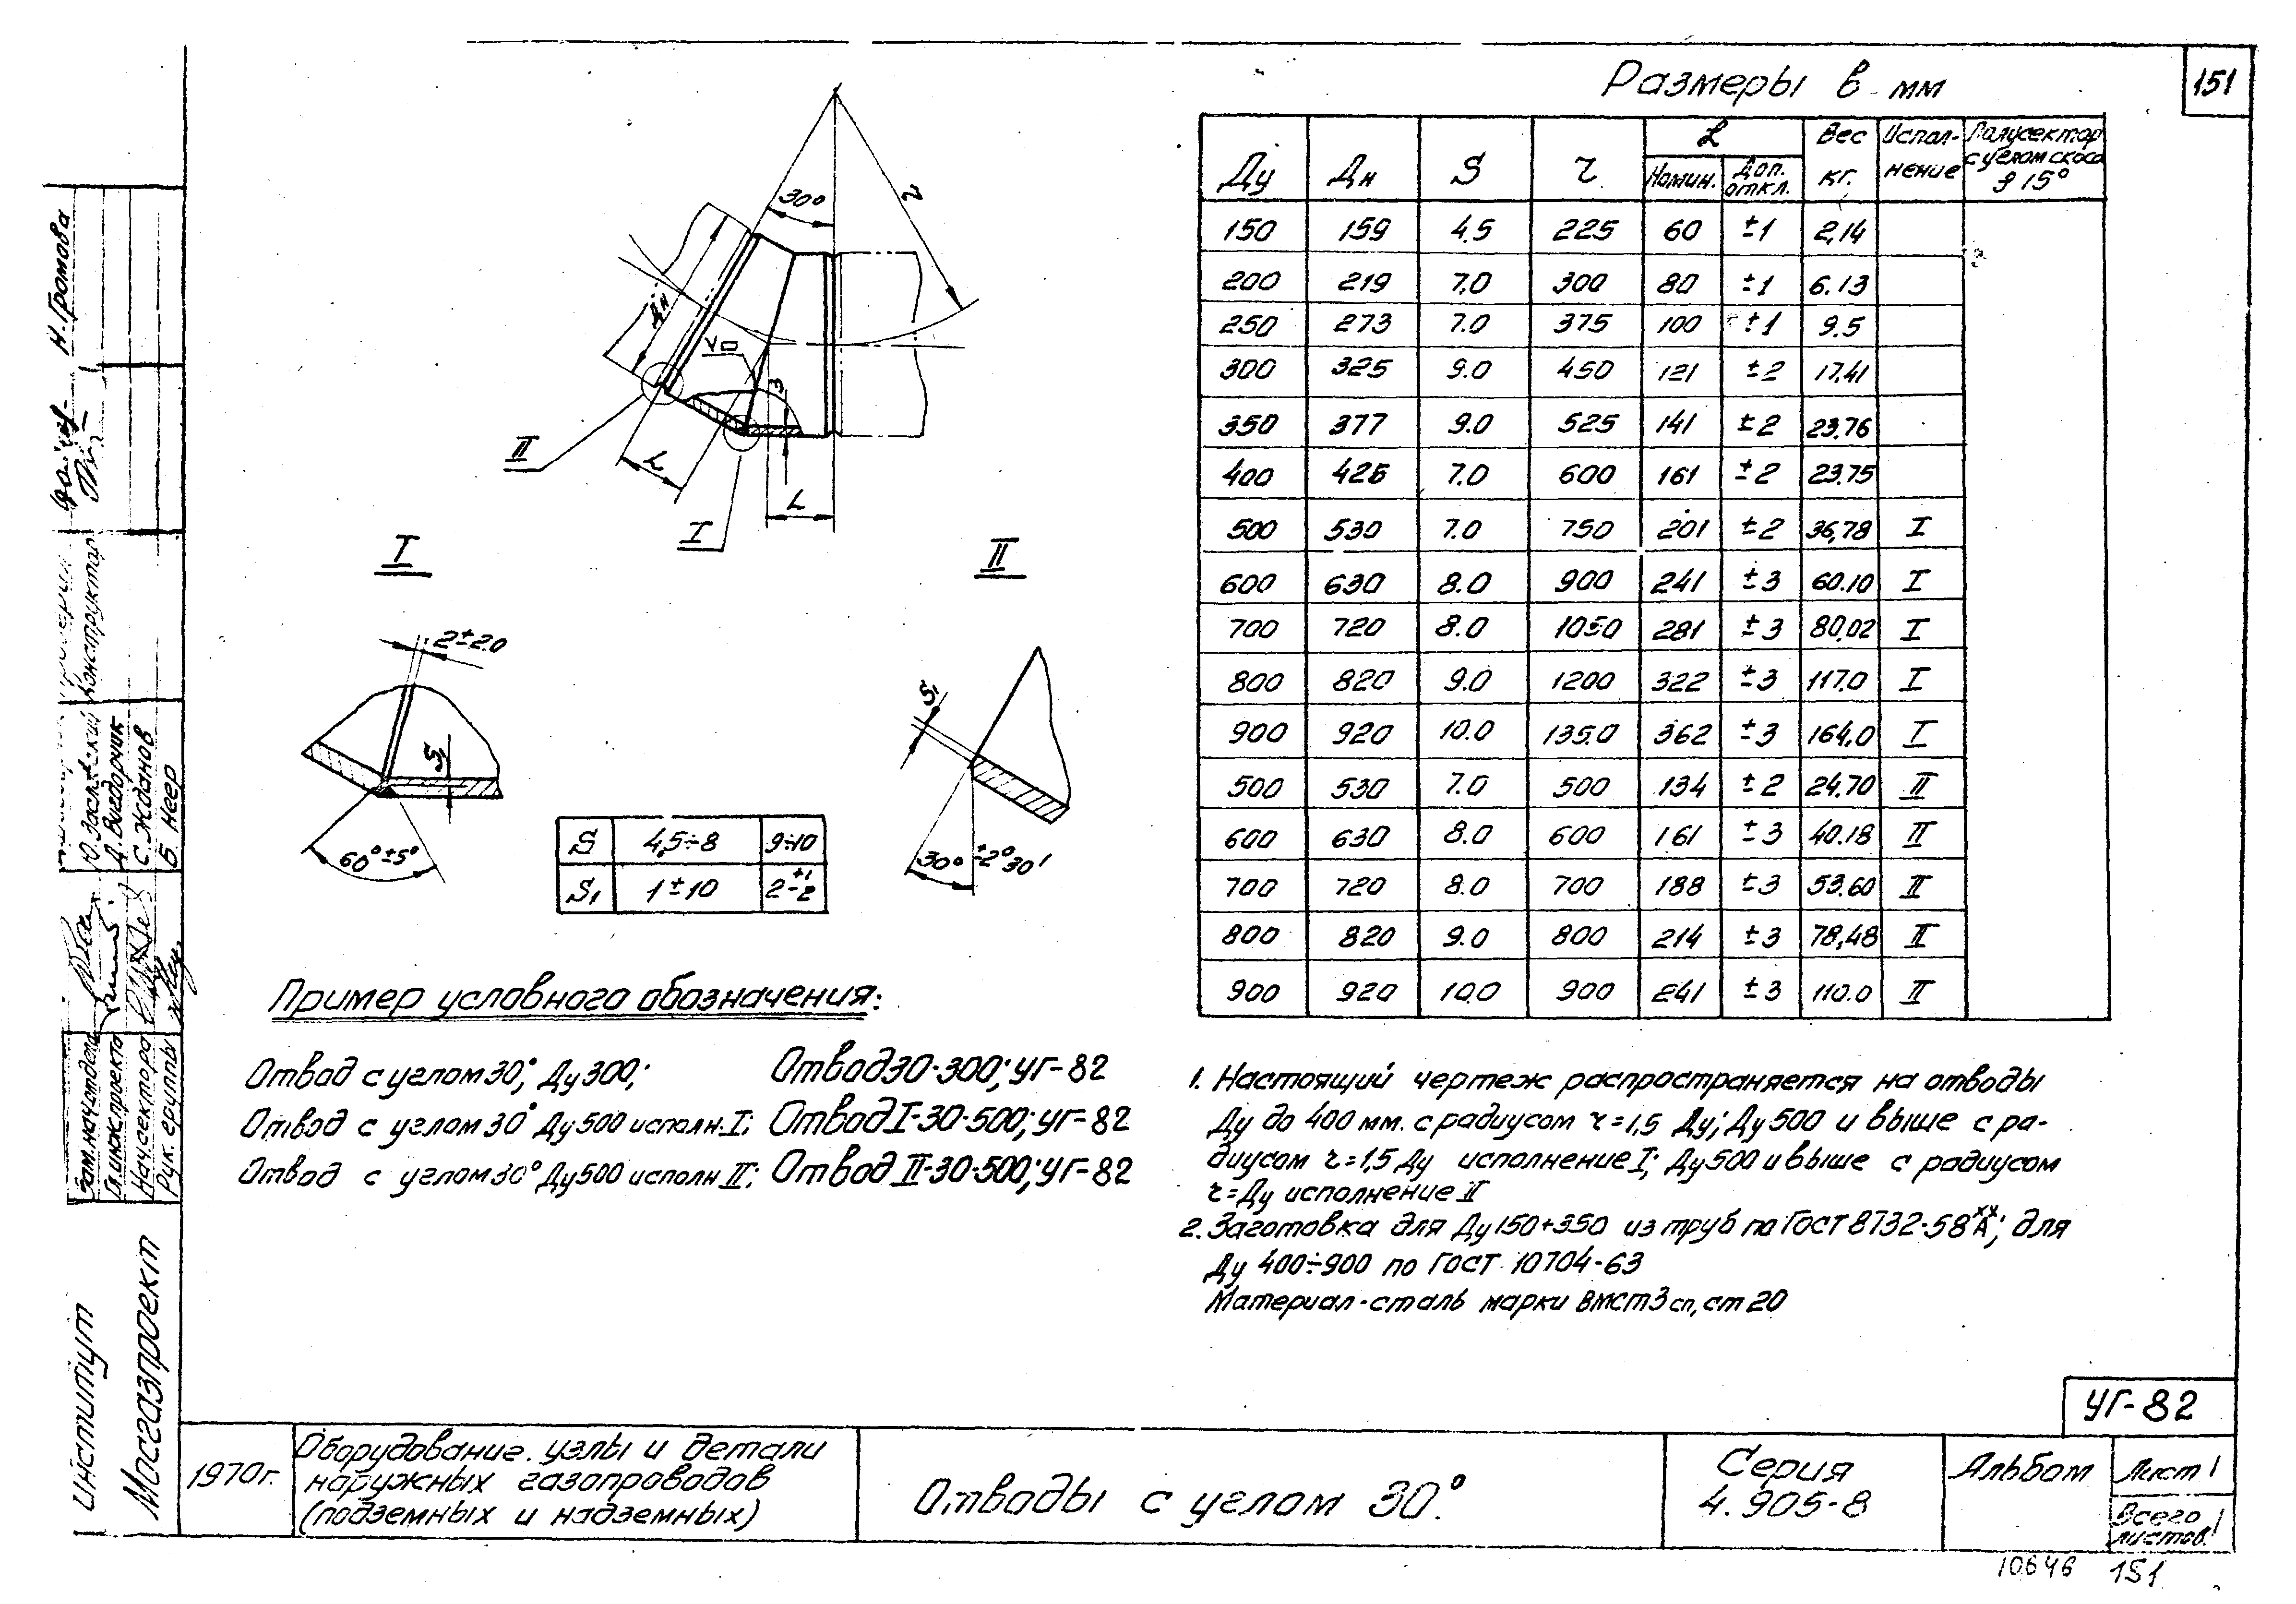 Размеры в мм
151
Ду Дн S r L Вес кг. Испол-нение Полусектор с углом скоса 9 15°
Номин. Доп. откл.
150 159 4.5 225 60 ±1 2,14
200 219 7.0 300 80 ±1 6.13
250 273 7.0 375 100 ±1 9.5
300 325 9.0 450 121 ±2 17,41
350 377 9.0 525 141 ±2 23.76
400 426 7.0 600 161 ±2 23.75
500 530 7.0 750 201 ±2 36,78 I
600 630 8.0 900 241 ±3 60.10 I
700 720 8.0 1050 281 ±3 80,02 I
800 820 9.0 1200 322 ±3 117.0 I
900 920 10.0 135.0 362 ±3 164,0 I
500 530 7.0 500 134 ±2 24.70 II
600 630 8.0 600 161 ±3 40.18 II
700 720 8.0 700 188 ±3 53.60 II
800 820 9.0 800 214 ±3 78,48 II
900 920 10.0 900 241 ±3 110.0 II
30°
r
Дн
L
L
II
I
I
2±2.0
S1
60°±5°
II
S1
30°±2°30'
S 4,5÷8 9÷10
S1 1±10 2+1-2
Пример условного обозначения:
Отвод с углом 30°, Ду300; Отвод30-300; УГ-82
Отвод с углом 30° Ду500 исполн. I; Отвод I-30-500; УГ-82
Отвод с углом 30° Ду500 исполн II; Отвод II-30-500; УГ-82
1. Настоящий чертеж распространяется на отводы
Ду до 400 мм. с радиусом r=1,5 Ду; Ду500 и выше с ра-
диусом r=1,5 Ду исполнение I; Ду500 и выше с радиусом
r=Ду исполнение II
2. Заготовка для Ду150÷350 из труб по Гост 8732-58 А; для
Ду 400÷900 по Гост 10704-63
Материал-сталь марки ВМст3сп, ст 20
Н. Громова
Конструктор
Ю. Заславский
Д. Внедорчик
С. Жданов
Б. Неер
Зам. нач. отдела
Гл. инж. проекта
Нач. сектора
Рук. группы
Институт
Мосгазпроект
УГ-82
1970г.
Оборудование. узлы и детали
наружных газопроводов
(подземных и надземных)
Отводы с углом 30°.
Серия
4.905-8
Альбом
Лист 1
Всего
листов 1
10646 151